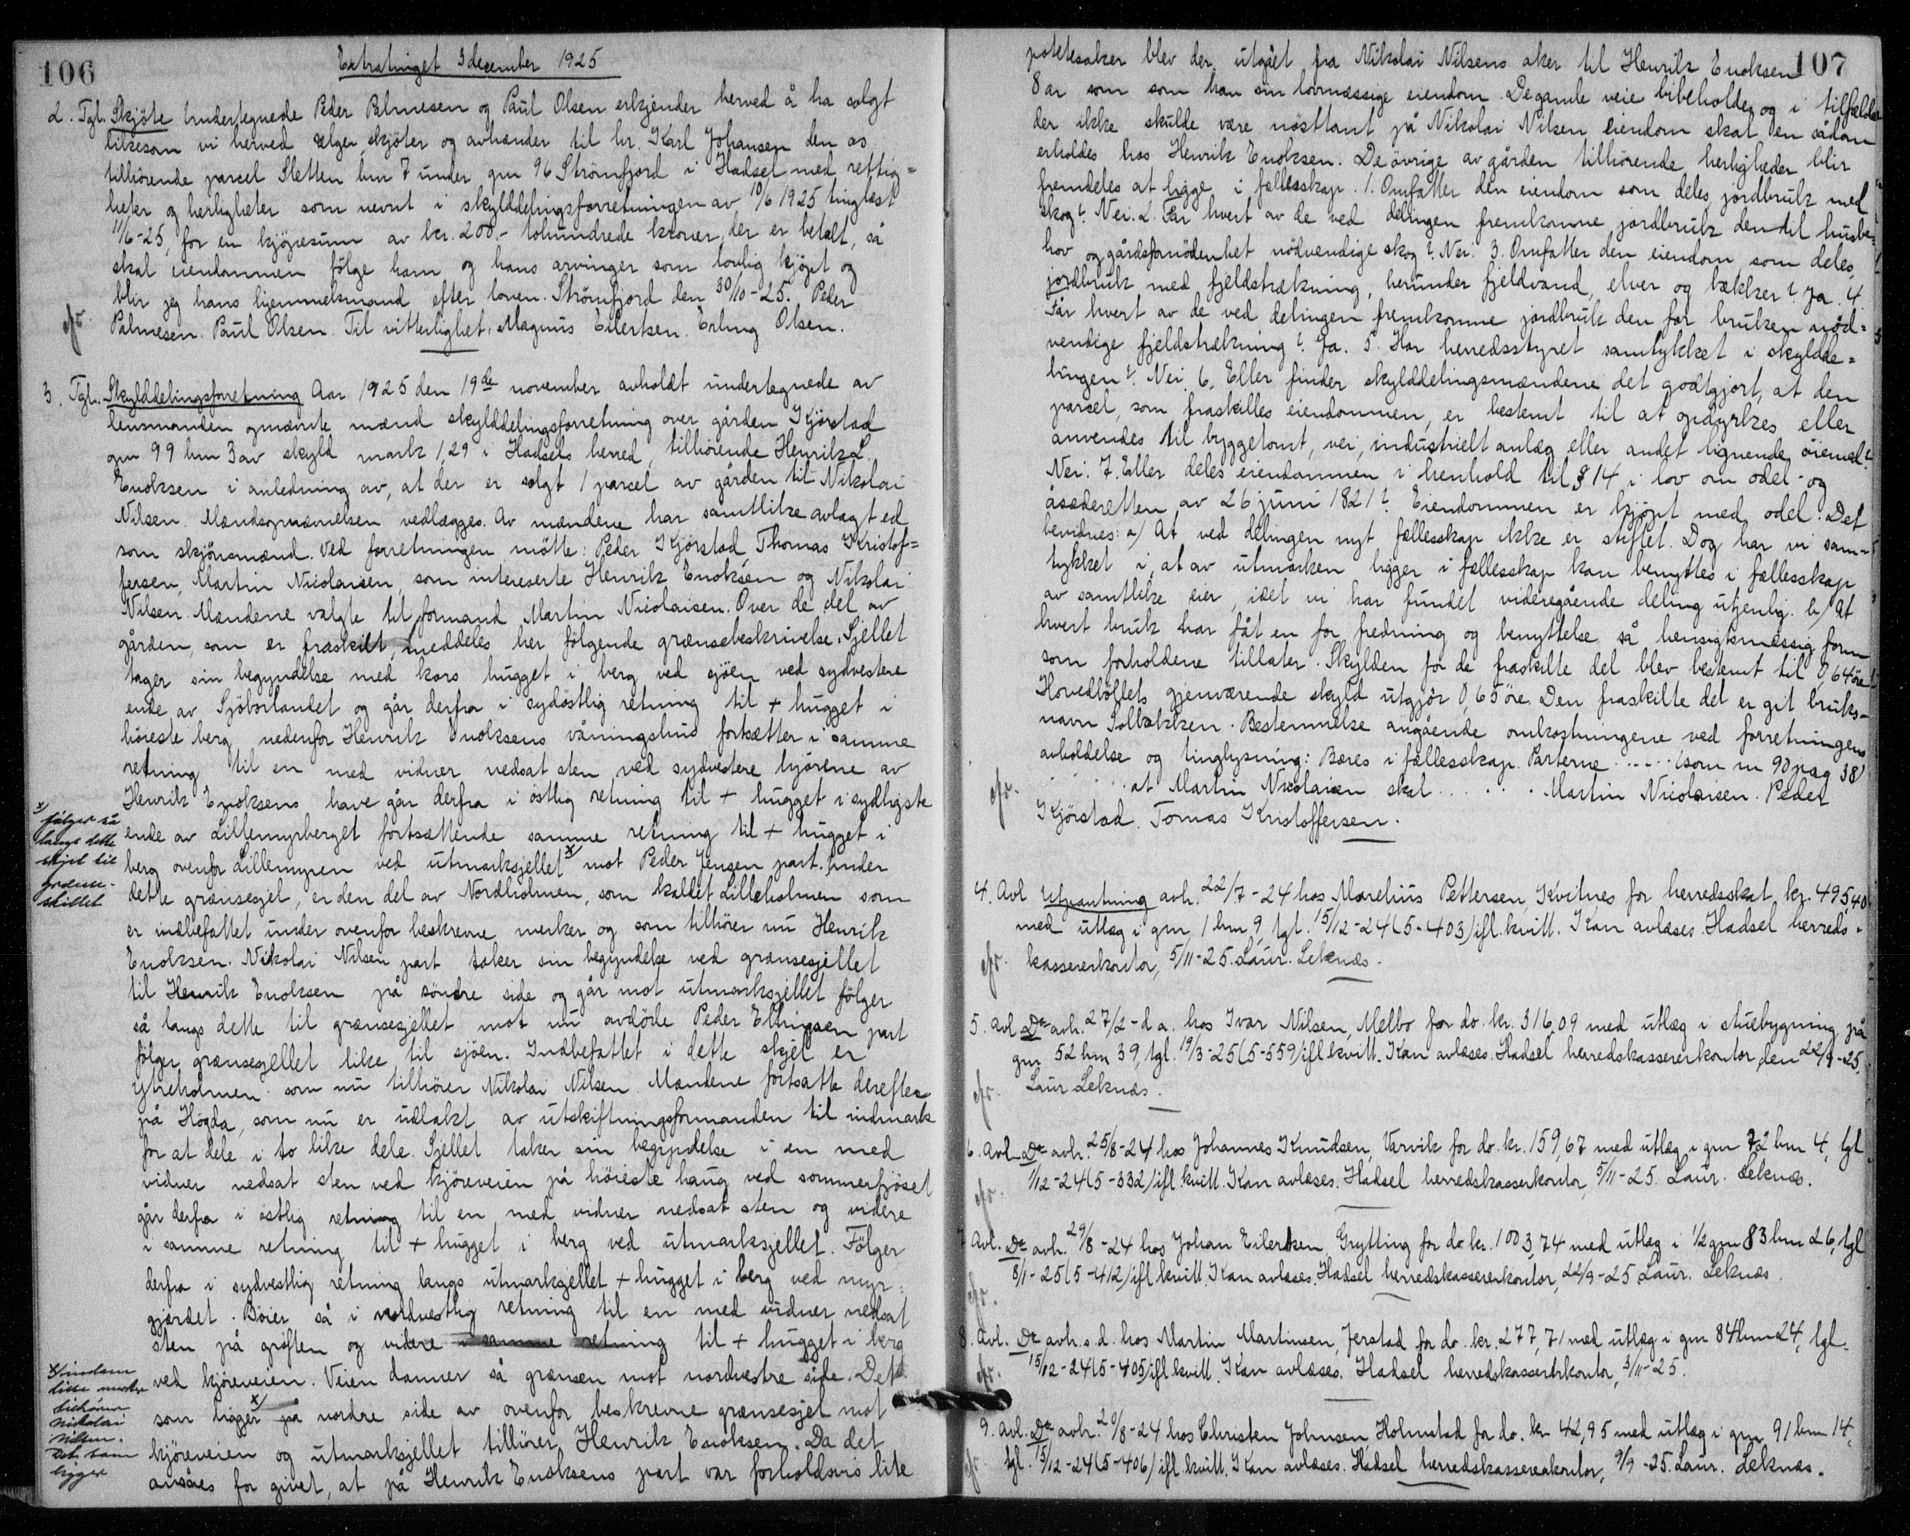 106
Extratinget 3 december 1925
2. Tgl. Skjöte Undertegnede Peder Palmesen og Paul Olsen erkjender herved å ha solgt
likesom vi herved sælger, skjöter og avhænder til hr. Karl Johansen den os
tilhörende parcel Sletten bnr 7 under gnr 96 Strömfjord i Hadsel med rettig=
heter og herligheter som nevnt i skylddelingsforretningen av 10/6 1925 tinglæst
11/6-25, for en kjöpesum av kr. 200,- tohundrede kroner, der er betalt, så
skal eiendommen følge ham og hans arvinger som lovlig kjöpt og
blir jeg hans hjemmelsmand efter loven. Strömfjord den 30/10-25. Peder
Palmesen. Paul Olsen. Til vitterlighet: Magnus Eilertsen. Erling Olsen.
3. Tgl. Skylddelingsforretning Aar 1925 den 19de november avholdt undertegnede av
lensmanden opnævnte mænd skylddelingsforretning over gården Kjörstad
gnr 99 bnr 3 av skyld mark 1,29 i Hadsels herred, tilhörende Henrik L.
Enoksen i anledning av, at der er solgt 1 parcel av gården til Nikolai
Nilsen. Mændsopnævnelsen vedlægges. Av mændene har samtlike avlagt ed
som skjönsmænd. Ved forretningen mötte: Peder Kjörstad, Thomas Kristof=
fersen, Martin Nicolaisen, som intereserte Henrik Enoksen og Nikolai
Nilsen. Mændene valgte til formand Martin Nicolaisen. Over de del av
gården, som er fraskilt, meddeles her følgende grænsebeskrivelse: Sjellet
tager sin begyndelse med kors hugget i berg ved sjöen ved sydvestere
ende av Sjöborlandet og går derfra i sydöstlig retning til + hugget i
höieste berg nedenfor Henrik Enoksens våningshus fortsætter i samme
retning til en med vidner nedsat sten ved sydvestere hjörene av
Henrik Enoksens have går derfra i östlig retning til + hugget i sydligste
ende av Lillemyrberget fortsættende samme retning til + hugget i
berg ovenfor Lillemyren ved utmarksjellet x/ mot Peder Jensen part. Under
x/ følger så
langs dette
skjel til
grænse-
skillet
dette grænsesjel, er den del av Nordholmen, som kaldet Lilleholmen som
er indbefattet under ovenfor beskrevne merker og som tilhörer nu Henrik
Enoksen. Nikolai Nilsen part taker sin begyndelse ved grænsesjellet
til Henrik Enoksen på söndre side og går mot utmarksjellet fölger
så langs dette til grænsesjellet mot nu avdöde Peder Ellingsen part
fölger grænsesjellet like til sjöen. Indbefattet i dette skjel er
Yreholmen som nu tilhörer Nikolai Nilsen. Mændene fortsatte derefter
på Högda, som nu er utlakt av utskiftningsformanden til indmark
for at dele i to like dele. Sjellet taker sin begyndelse i en med
vidner nedsat sten ved kjöreveien på höieste haug ved sommerfjöset
går derfra i östlig retning til en med vidner nedsat sten og videre
i samme retning til + hugget i berg ved utmarksjellet. Fölger
derfra i sydvestlig retning langs utmarksjellet + hugget i berg ved myr=
gjærdet. Böier så i nordvestlig retning til en med vidner nedsat
sten på gröften og videre i samme retning til + hugget i berg
ved kjöreveien. Veien danner så grænsen mot nordvestre side. Det
som ligger x/ på nordre side av ovenfor beskrevne grænsesjel mot
x/ indom
disse merke
tilhörer
Nikolai
Nilsen.
Det som
ligger
kjöreveien og utmarksjellet tilhörer Henrik Enoksen. Da det
ansåes for givet, at på Henrik Enoksens part var forholdsvis lite
107
potetesaker blev der utgået fra Nikolai Nilsens aker til Henrik Enoksen
8 ar som som han sin lovmæssige eiendom. De gamle veie bibeholdes og i tilfælde
der ikke skulde være nösttomt på Nikolai Nilsen eiendom skal en sådan
erholdes hos Henrik Enoksen. De övrige av gården tilhörende herligheder blir
fremdeles at ligge i fællesskap. 1. Omfatter den eiendom som deles, jordbruk med
skog? Nei. 2. Får hvert av de ved delingen fremkomne jordbruk den til husbe=
hov og gårdsfornödenhet nödvendige skog? Nei. 3. Omfatter den eiendom som deles,
jordbruk med fjeldstrækning, herunder fjeldvand, elver og bækker? Ja. 4.
Får hvert av de ved delingen fremkomne jordbruk den for bruken nöd=
vendige fjeldstrækning? Ja. 5. Har herredsstyret samtykket i skyldde=
lingen? Nei. 6. Eller finder skylddelingsmændene det godtgjort, at den
parcel, som fraskilles eiendommen, er bestemt til at opdyrkes eller
anvendes til byggetomt, vei, industrielt anlæg eller andet lignende öiemed?
Nei. 7. Eller deles eiendommen i henhold til § 14 i lov om odel- og
åsæderetten av 26 juni 1821? Eiendommen er kjöpt med odel. Det
bevidnes: a) At ved delingen nyt fællesskap ikke er stiftet. Dog har vi sam=
tykket i, at av utmarken ligger i fællesskap kan benyttes i fællesskap
av samtlike eier, idet vi har fundet videregående deling utjenlig. b) At
hvert bruk har fåt en for fredning og benyttelse så hensigtsmæssig form
som forholdene tillater. Skylden for de fraskilte del blev bestemt til 0,64 öre
Hovedböllets gjenværende skyld utgjör 0,65 öre. Den fraskilte del er git bruks-
navn Solbakken. Bestemmelse angående omkostningene ved forretningens
avholdelse og tinglysning: Bæres i fællesskap. Parterne . . . . . (som nr 90 pag 38)
. . . . . at Martin Nicolaisen skal . . . . . Martin Nicolaisen. Peder
Kjörstad. Tomas Kristoffersen.
4. Avl. Utpantning avh. 22/7-24 hos Marelius Pettersen, Kvitnes for herredsskat kr. 495,40
med utlæg i gnr 1 bnr 9, tgl. 15/12-24 (5-403) ifl. kvitt. Kan avlæses. Hadsel herreds-
kassererkontor, 5/11-25. Laur. Leknæs.
5. Avl. Do avh. 27/2-d.a. hos Ivar Nilsen, Melbo for do. kr. 316,09 med utlæg i stuebygning på
gnr 52 bnr 39, tgl. 19/3-25 (5-559) ifl. kvitt. Kan avlæses. Hadsel herredskassererkontor, den 22/9-25.
Laur Leknæs.
6. Avl. Do avh. 25/8-24 hos Johannes Knudsen, Varvik for do. kr. 159,67 med utlæg i gnr 72 bnr 4, tgl.
1/12-24 (5-332) ifl. kvitt. Kan avlæses. Hadsel herredskasserkontor, 5/11-25. Laur. Leknæs.
7. Avl. Do avh. 29/8-24 hos Johan Eilertsen, Grytting for do. kr. 1003,74 med utlæg i 1/2 gnr 83 bnr 26, tgl
8/1-25 (5-412) ifl. kvitt. Kan avlæses. Hadsel herredskassererkontor, 22/9-25 Laur. Leknæs.
8. Avl. Do avh. s.d. hos Martin Martinsen, Jerstad for do. kr. 277,71 med utlæg i gnr 84 bnr 24, tgl.
15/12-24 (5-405) ifl. kvitt. Kan avlæses. Hadsel herredskassererkontor, 3/11-25.
9. Avl. Do avh. 20/8-24 hos Christen Johnsen Holmstad for do. kr 42,95 med utlæg i gnr 91 bnr 14,
tgl. 15/12-24 (5-406) ifl. kvitt. Kan avlæses. Hadsel herredskassererkontor, 9/9-25. Laur. Leknæs.